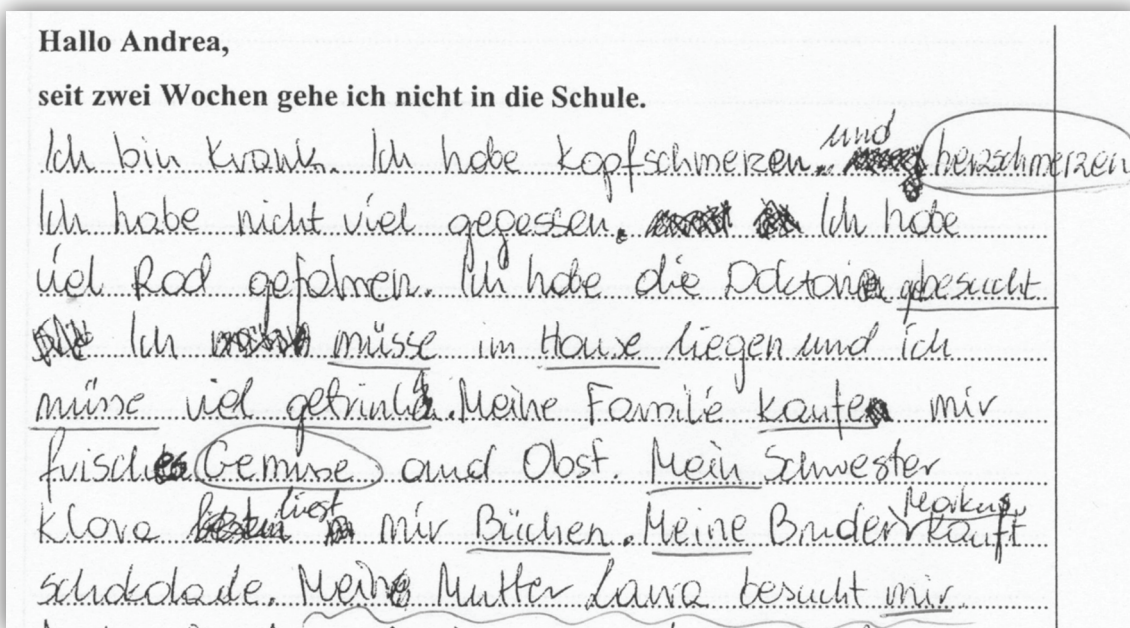 Hallo Andrea,
seit zwei Wochen gehe ich nicht in die Schule.
Ich bin Krank. Ich habe Kopfschmerzen. und herzschmerzen
Ich habe nicht viel gegessen. Ich habe
viel Rad gefahren. Ich habe die Doktorin gebesucht
Ich müsse im Hause liegen und ich
müsse viel getrink. Meine Familie kaufen mir
frisches Gemuse und Obst. Mein Schwester
Klara liest mir Büchen. Meine Bruder Markus kauft
schokolade. Meine Mutter Laura besucht mir.